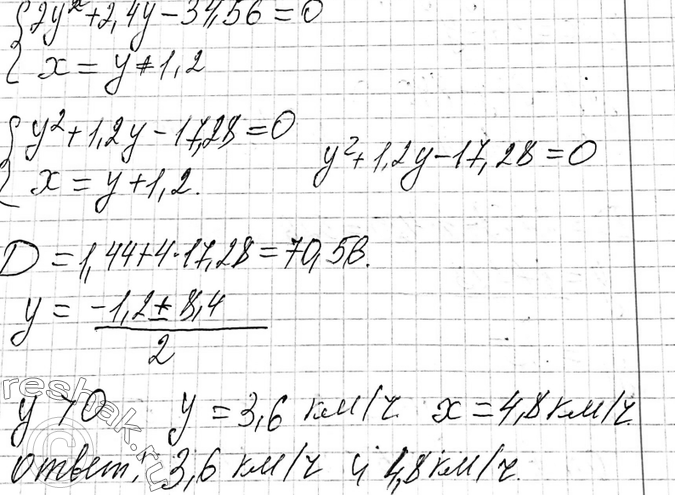 2y² + 2,4y - 34,56 = 0
x = y + 1,2
y² + 1,2y - 17,28 = 0
x = y + 1,2.
y² + 1,2y - 17,28 = 0
D = 1,44 + 4·17,28 = 70,56.
y = (-1,2 ± 8,4)/2
y > 0 y = 3,6 км/ч. x = 4,8 км/ч
Ответ: 3,6 км/ч и 4,8 км/ч.
reshak.ru